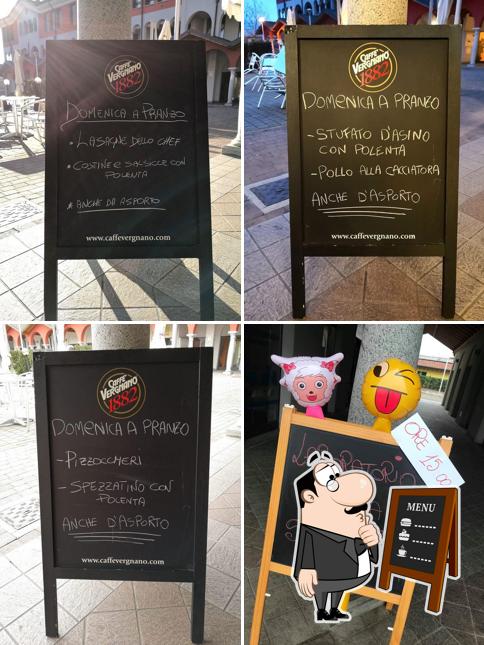 Caffè
Vergnano
1882
Domenica a Pranzo
• Lasagne dello chef
• Costine e salsicce con
polenta
* Anche da asporto
www.caffevergnano.com
Caffè
Vergnano
1882
Domenica a Pranzo
- Stufato d'asino
con polenta
- Pollo alla cacciatora
Anche d'asporto
www.caffevergnano.com
Caffè
Vergnano
1882
Domenica a Pranzo
- Pizzoccheri
- Spezzatino con
polenta
Anche d'asporto
www.caffevergnano.com
ORE 15.00
MENU